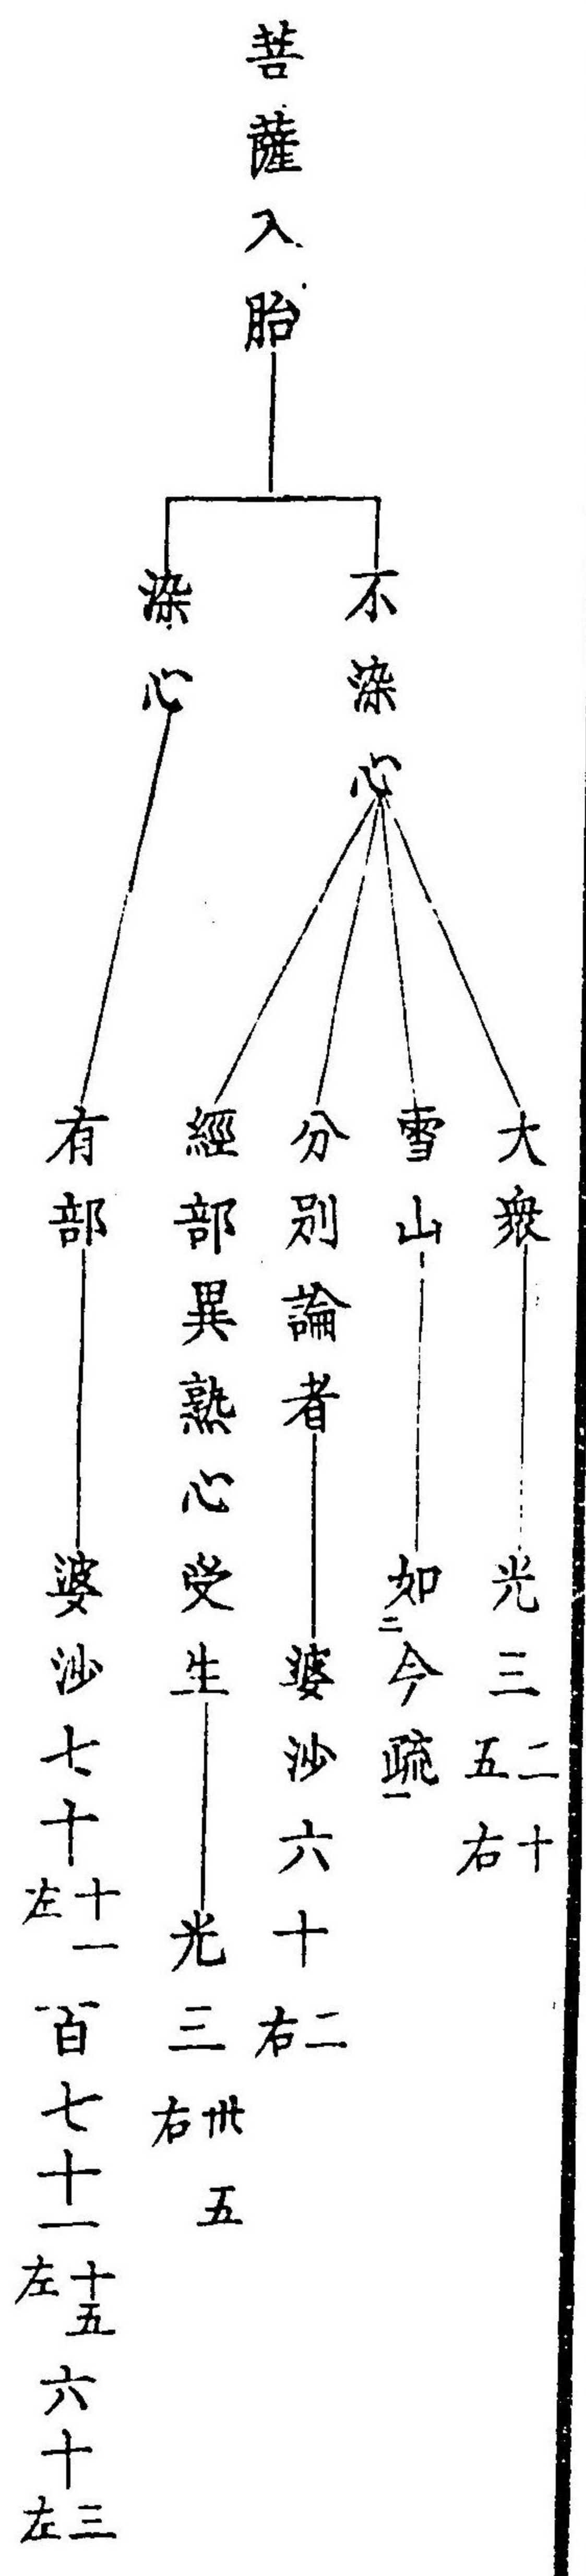 菩薩入胎
不染心
大衆 光三二十五右
雪山 如二今疏一
分別論者 婆沙六十二右
經部異熟心受生 光三卅五右
染心
有部 婆沙七十十一左 一百七十一十五左 六十三左